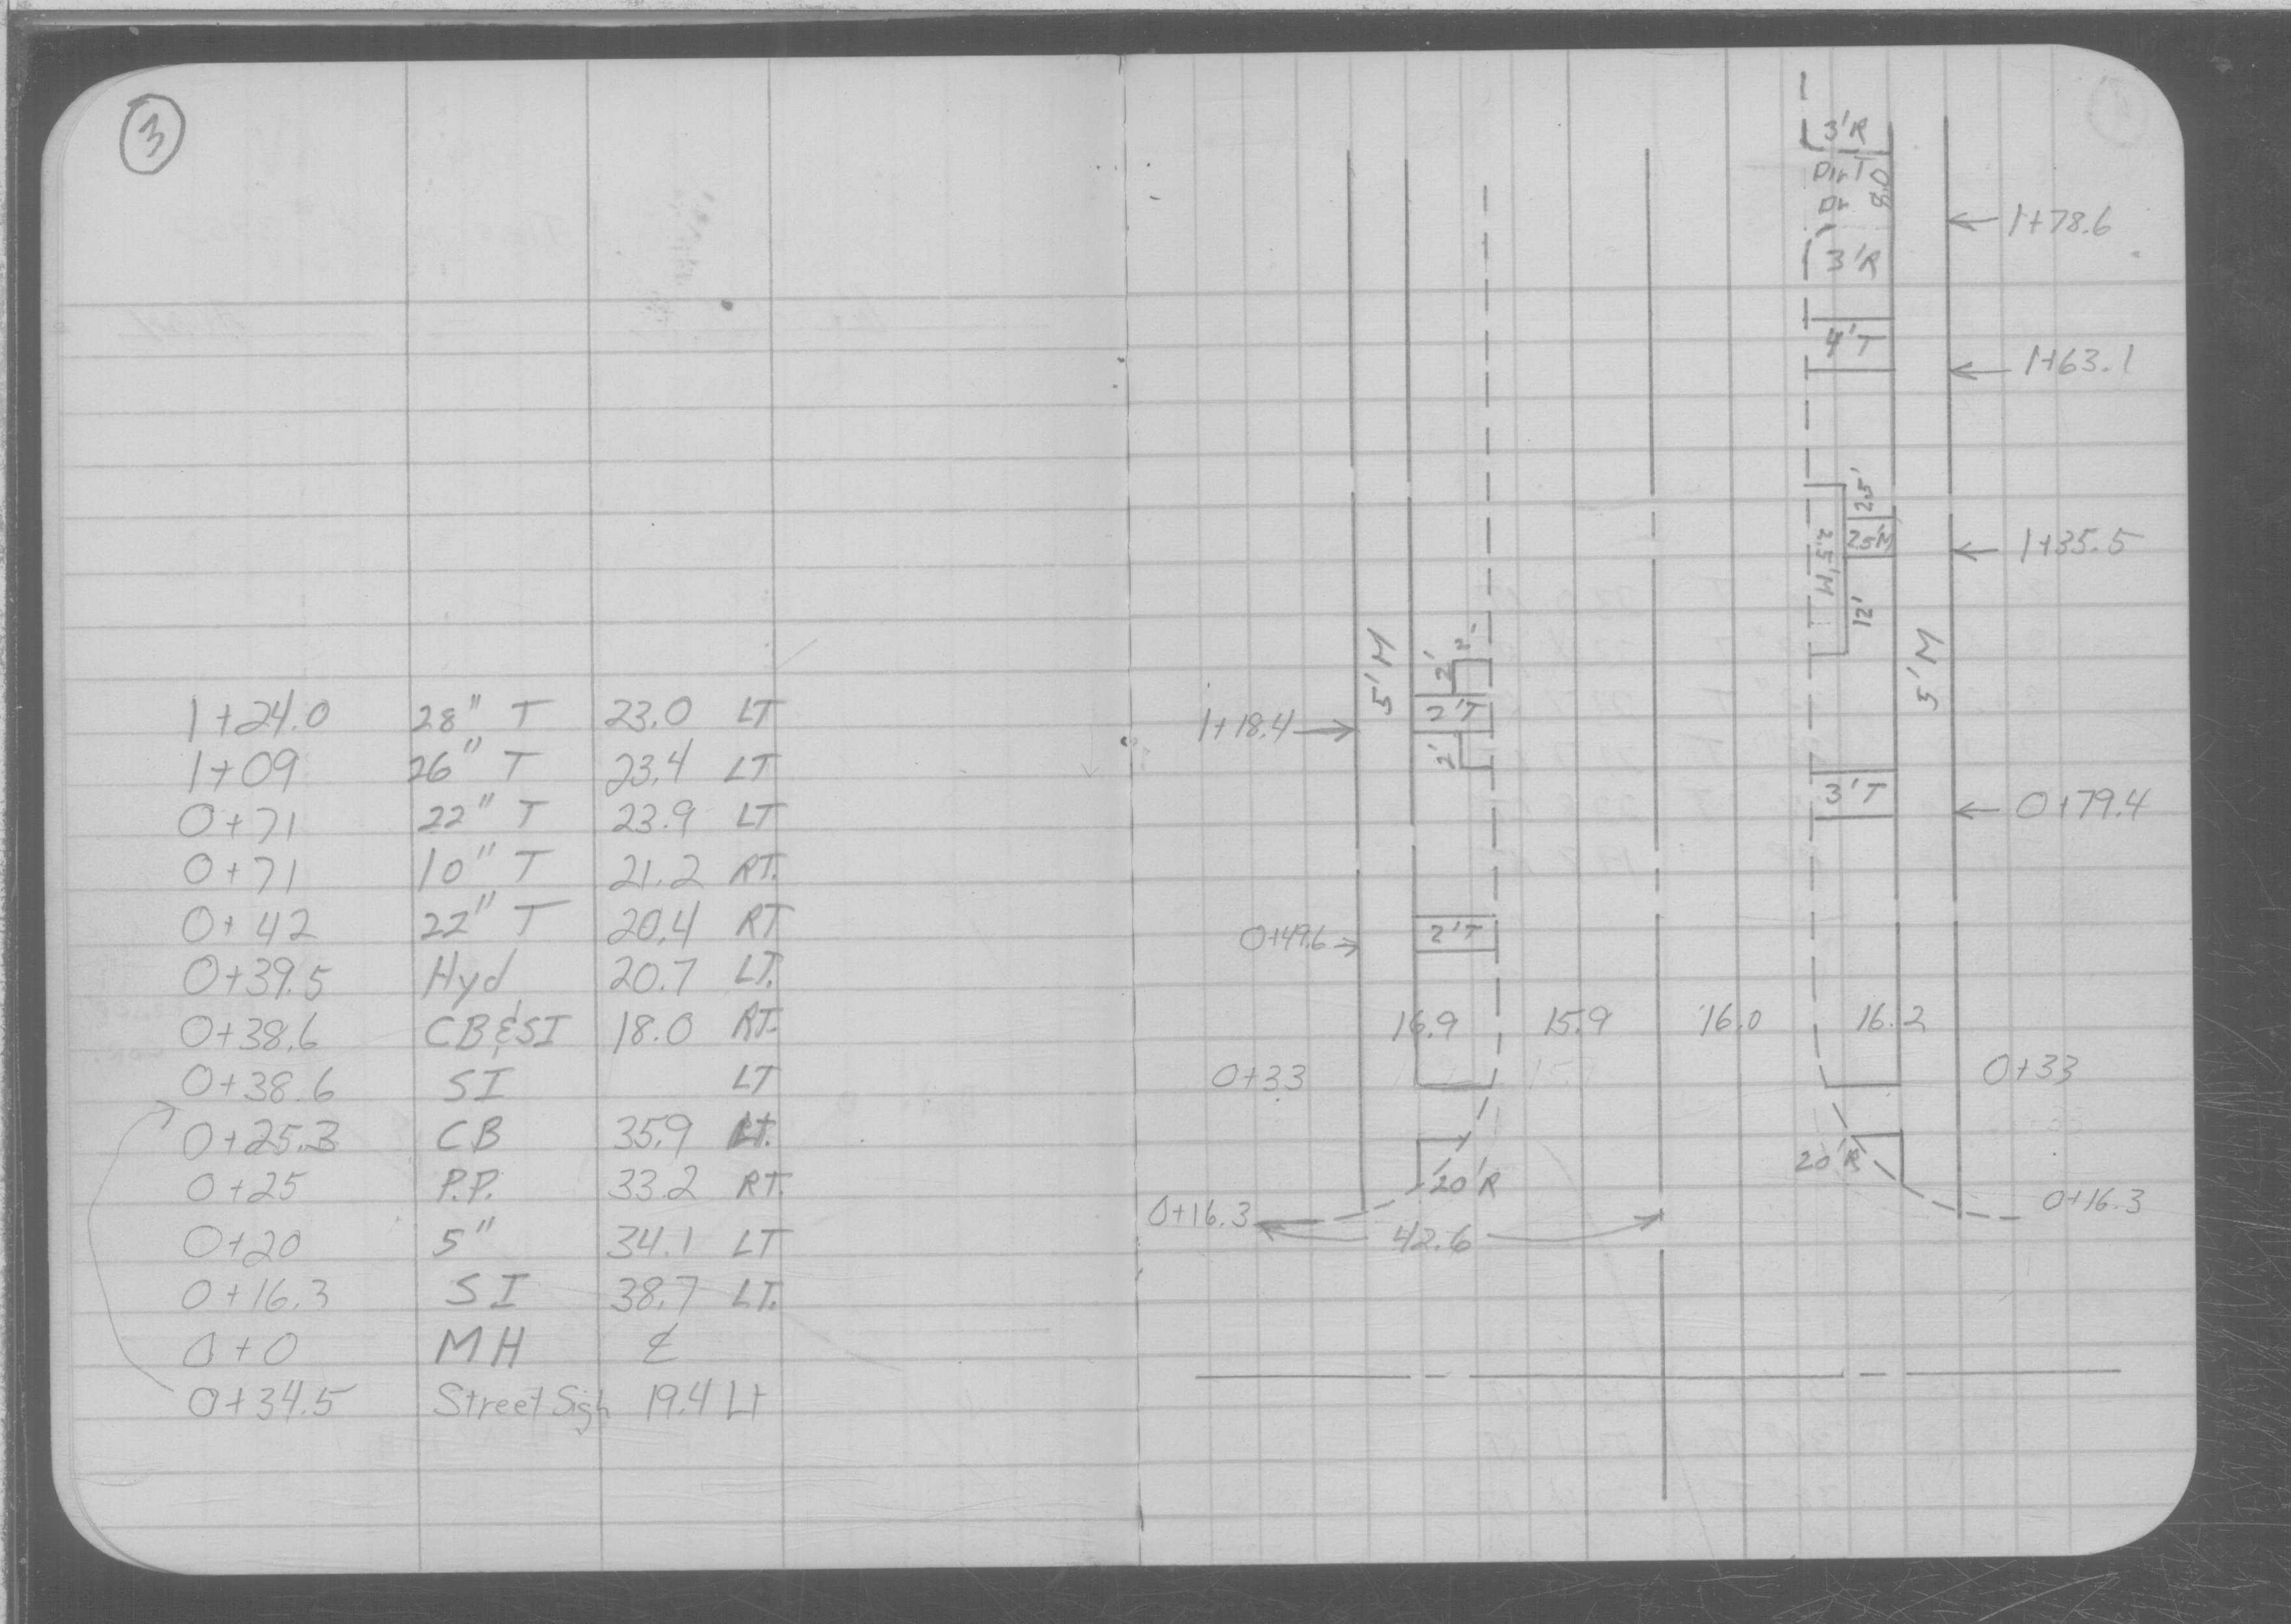 3
1+24.0 28" T 23.0 LT
1+09 26" T 23.4 LT
0+71 22" T 23.9 LT
0+71 10" T 21.2 RT.
0+42 22" T 20.4 RT
0+39.5 Hyd 20.7 LT.
0+38.6 CB & SI 18.0 RT.
0+38.6 SI LT
0+25.3 CB 35.9 Lt.
0+25 P.P. 33.2 RT.
0+20 5" 34.1 LT
0+16.3 SI 38.7 LT.
0+0 MH ℄
0+34.5 Street Sign 19.4 Lt
3'R
Dirt
Dr 8.0
1+78.6
3'R
4'T
1+63.1
2.5'
2.5'M
2.5'M
1+35.5
12'
5'M
2'
2'
5'M
1+18.4
2'T
2'
3'T
0+79.4
0+49.6
2'T
16.9 15.9 16.0 16.2
0+33
0+33
20'R
20'R
0+16.3
0+16.3
42.6